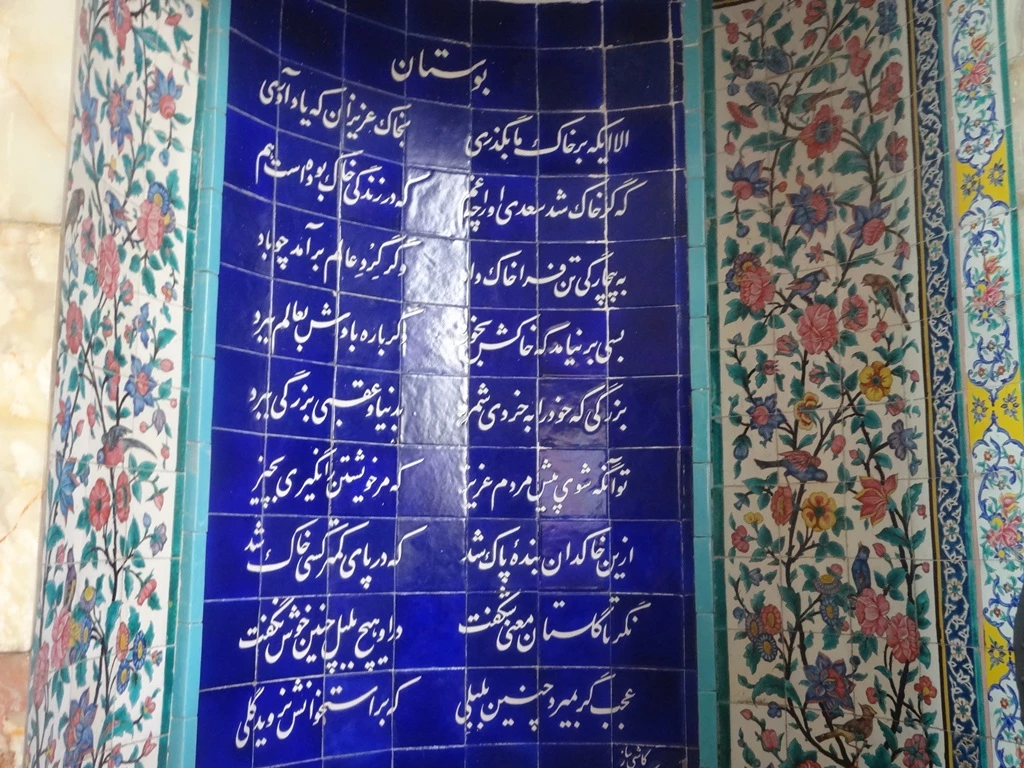 بوستان
الا ایکه بر خاک ما بگذری بخاک عزیزان که یاد آوری
که گر خاک شد سعدی او را چه غم که در زندگی خاک بوده است هم
به بیچارگی تن فرا خاک داد وگر گرد عالم برآمد چو باد
بسی برنیامد که خاکش خورد دگر باره بادش بعالم برد
بزرگی که خود را به خردی شمرد بدنیا و عقبی بزرگی ببرد
تو آنگه شوی پیش مردم عزیز که مر خویشتن را نگیری بچیز
ازین خاکدان بنده پاک شد که در پای کمتر کسی خاک شد
نگر تا گلستان معنی شکفت درو هیچ بلبل چنین خوش نگفت
عجب گر بمیرد چنین بلبلی که بر استخوانش نروید گلی
کاشی ساز